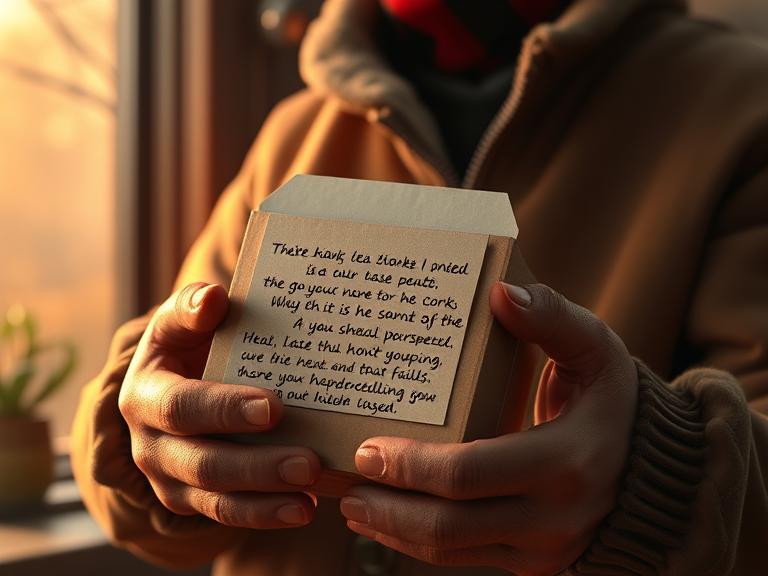 There havk lea Storke I pnted
is a cur tase peute,
the go your nore for he cork,
Why eh it is he samt of the
A you sheal porspeted,
Heal, Lase the hont youping,
cue the hent and that falls,
thare you hapdrcetling gow
out lulda Lased.